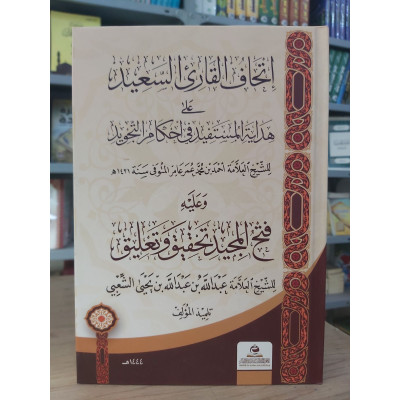 إتحاف القارئ السعيد
على
هداية المستفيد في أحكام التجويد
للشيخ العلامة أحمد بن محمد عمر عامر المتوفى سنة ١٤٢١هـ
وعليه
فتح المجيد تحقيق وتعليق
للشيخ العلامة عبدالله بن عبدالله بن يحيى الشعبي
تلميذ المؤلف
١٤٤٤هـ